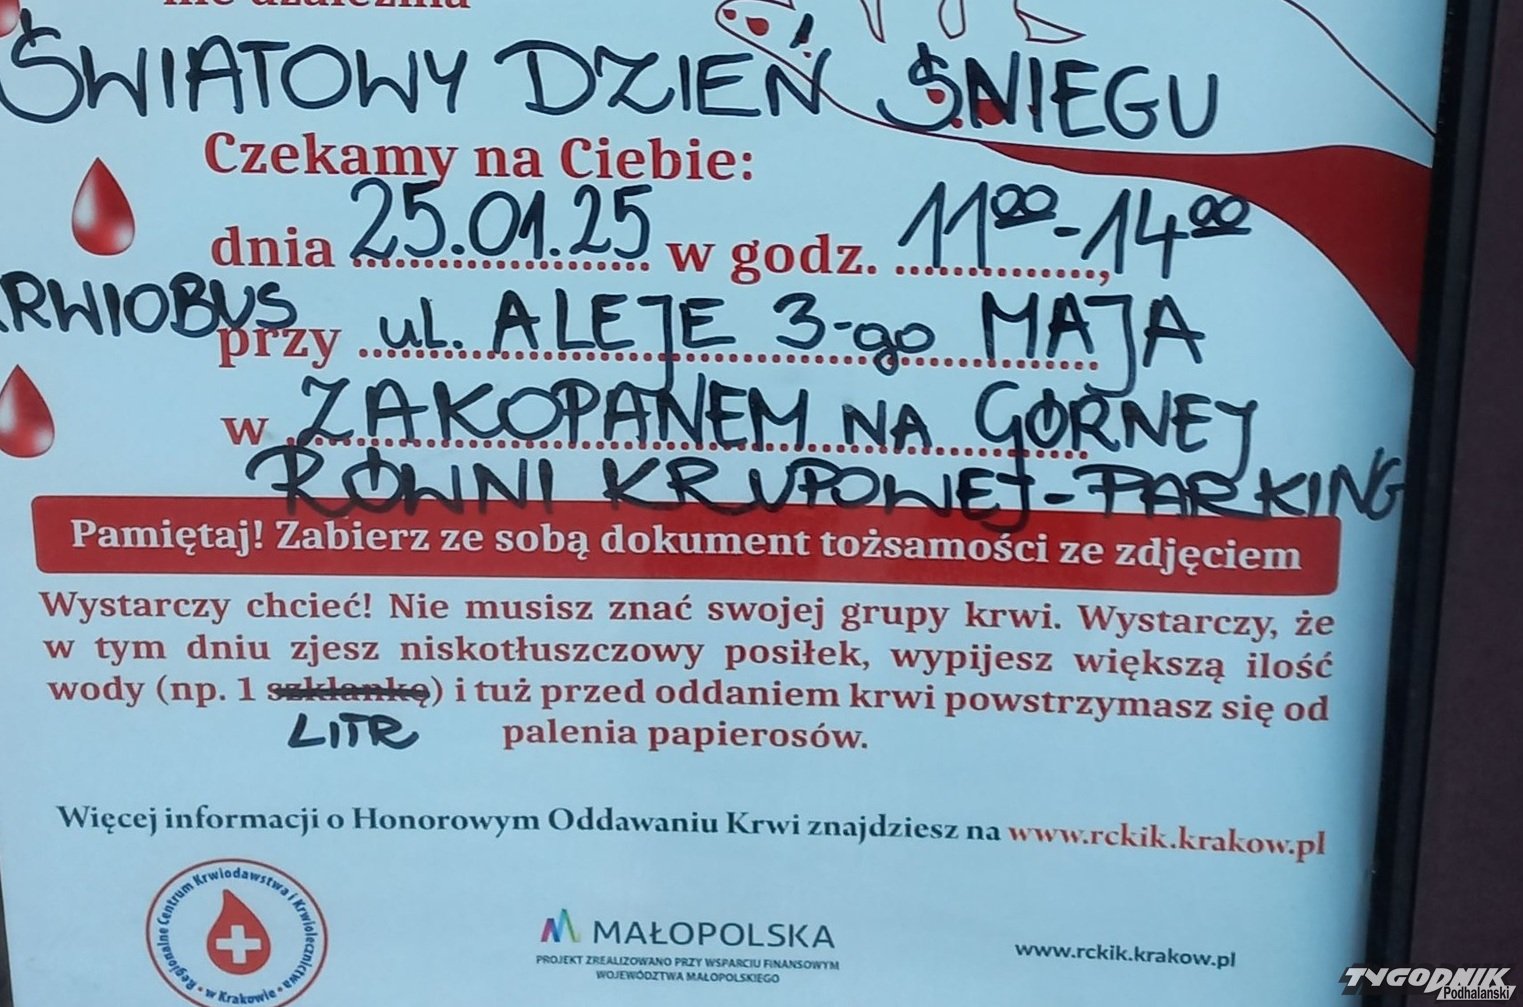 ŚWIATOWY DZIEŃ ŚNIEGU
Czekamy na Ciebie:
dnia 25.01.25 w godz. 11⁰⁰-14⁰⁰
RWIOBUS
przy ul. ALEJE 3-go MAJA
w ZAKOPANEM NA GÓRNEJ
RÓWNI KRUPOWEJ-PARKING
Pamiętaj! Zabierz ze sobą dokument tożsamości ze zdjęciem
Wystarczy chcieć! Nie musisz znać swojej grupy krwi. Wystarczy, że
w tym dniu zjesz niskotłuszczowy posiłek, wypijesz większą ilość
wody (np. 1 szklankę) i tuż przed oddaniem krwi powstrzymasz się od
LITR palenia papierosów.
Więcej informacji o Honorowym Oddawaniu Krwi znajdziesz na www.rckik.krakow.pl
Regionalne Centrum Krwiodawstwa i Krwiolecznictwa • w Krakowie •
MAŁOPOLSKA
PROJEKT ZREALIZOWANO PRZY WSPARCIU FINANSOWYM
WOJEWÓDZTWA MAŁOPOLSKIEGO
www.rckik.krakow.pl
TYGODNIK
Podhalański